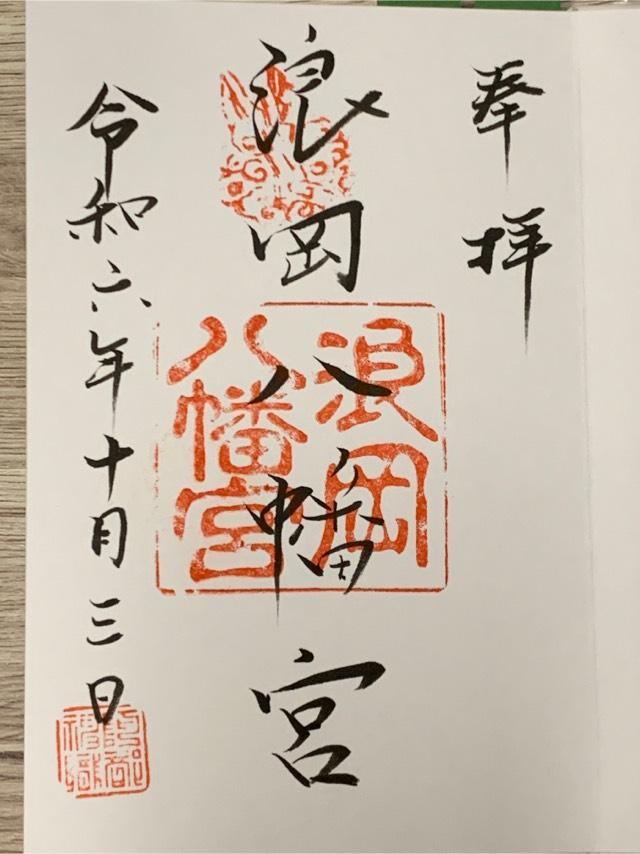 奉拝
浪岡八幡宮
浪岡八幡宮
令和六年十月三日